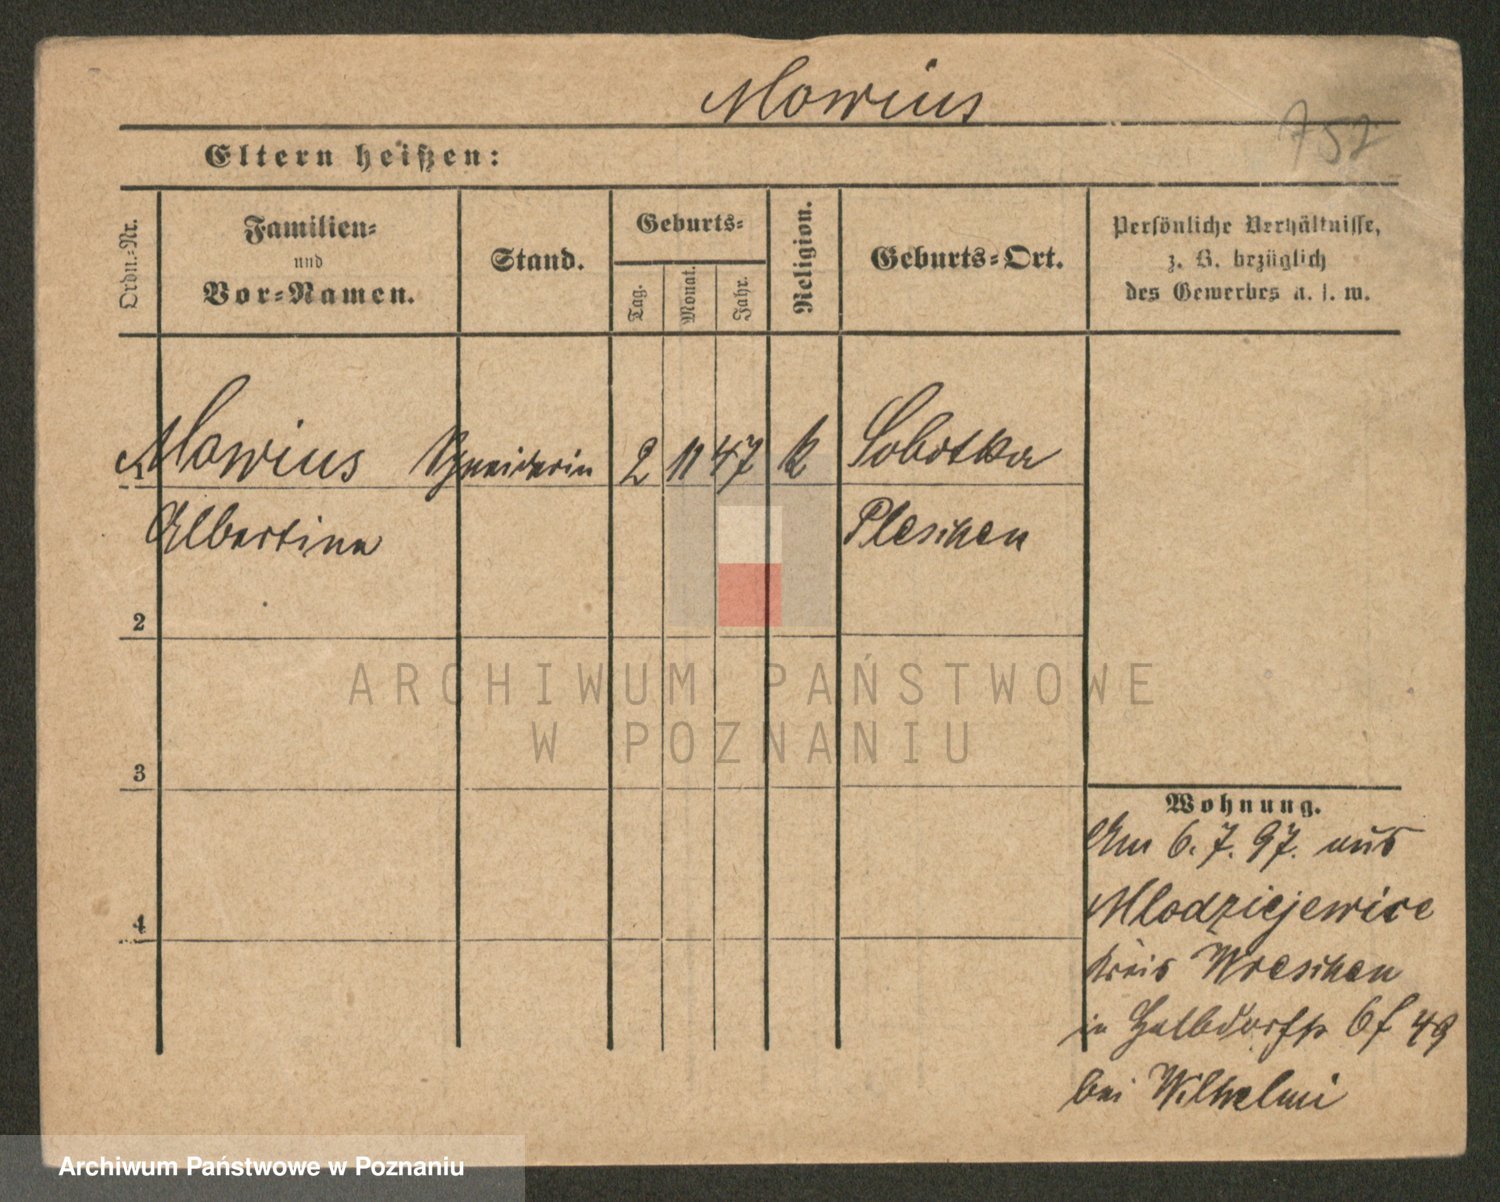 Mowius
752
Eltern heißen:
Ordn.-Nr.
Familien-
und
Vor-Namen.
Stand.
Geburts-
Tag.
Monat.
Jahr.
Religion.
Geburts-Ort.
Persönliche Verhältnisse,
z. B. bezüglich
des Gewerbes u. s. w.
1 Mowius Schneiderin 2 11 47 k Sobotka
Albertine Pleschen
2
3
4
ARCHIWUM PAŃSTWOWE
W POZNANIU
Wohnung.
Am 6. 7. 97. aus
Mlodziejewice
Kreis Wreschen
in Halbdorfstr 6 f 49
bei Wilhelmi
Archiwum Państwowe w Poznaniu